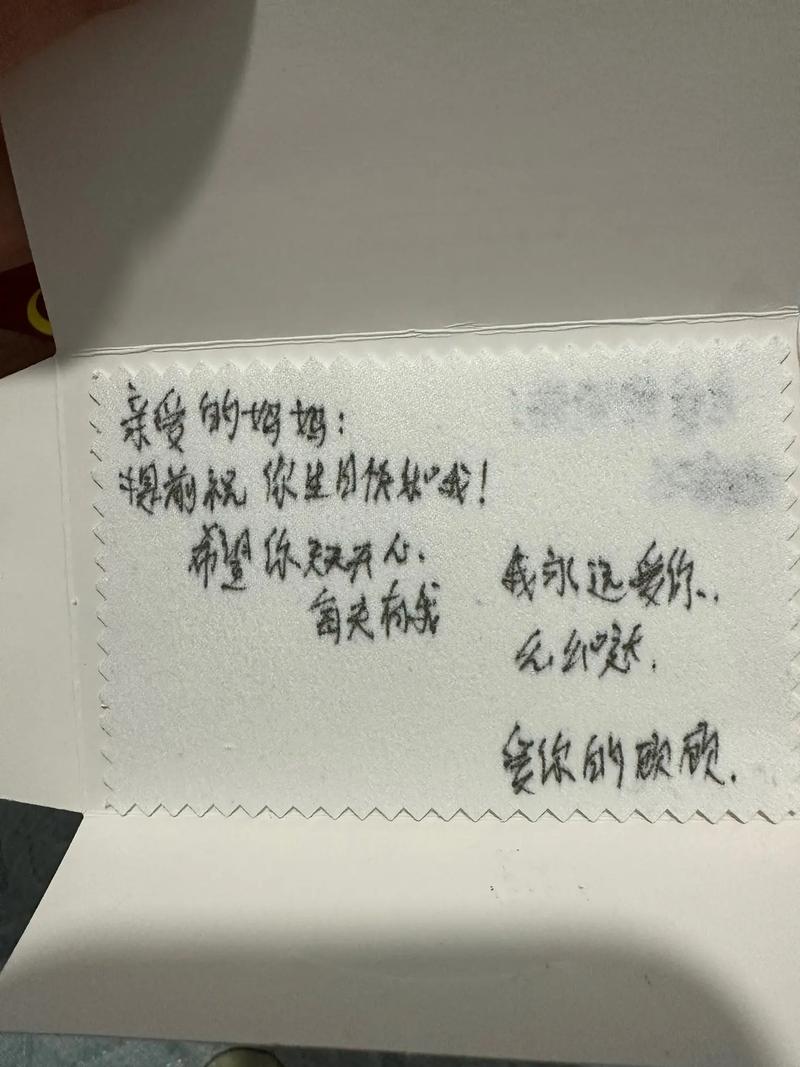 亲爱的妈妈：
提前祝你生日快乐哦！
希望你天天开心、
每天有我
我永远爱你、
么么哒.
爱你的顾顾.